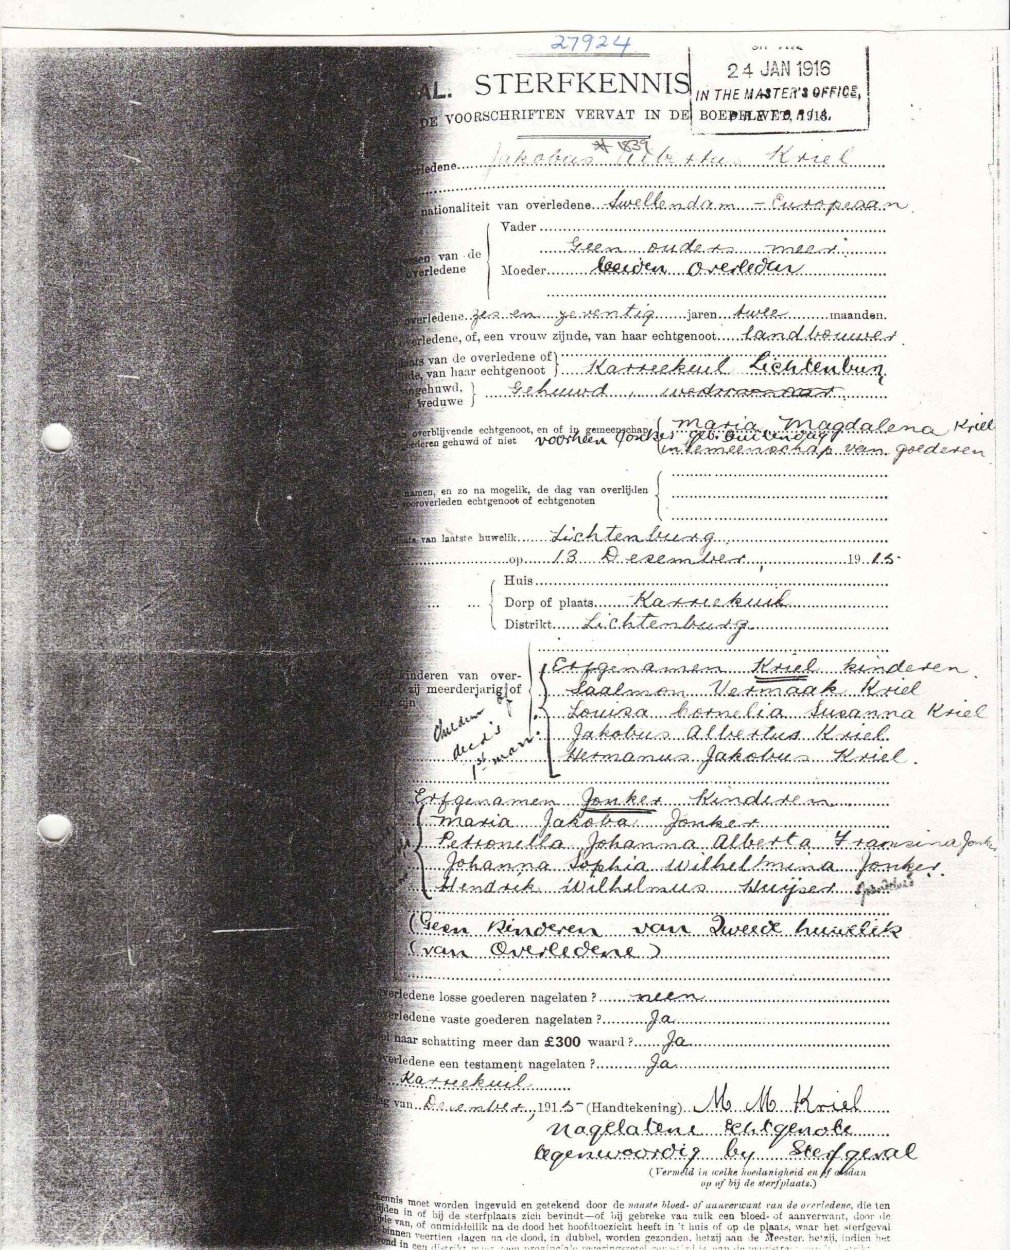 27924
24 JAN 1916
IN THE MASTER'S OFFICE,
AL. STERFKENNIS
DE VOORSCHRIFTEN VERVAT IN DE BOEDELWET, 1913.
* 1839
ledene Jakobus Albertus Kriel
nationaliteit van overledene Swellendam - Europeaan
Vader
Geen ouders meer
van de overledene
Moeder beiden overleden
overledene zes en zeventig jaren twee maanden.
overledene, of, een vrouw zijnde, van haar echtgenoot landbouwer
van de overledene of
de, van haar echtgenoot Karreekuil Lichtenburg
ngehuwd,
weduwe Gehuwd
overblijvende echtgenoot, en of in gemeenschap Maria Magdalena Kriel
goederen gehuwd of niet voorheen Jonker geb. Buitendag
in Gemeenschap van goederen
namen, en zo na mogelik, de dag van overlijden
vooroverleden echtgenoot of echtgenoten
van laatste huwelik Lichtenburg
op 13 Desember 1915
Huis
Dorp of plaats Karreekuil
Distrikt Lichtenburg
Erfgenamen Kriel kinderen
kinderen van over-
zij meerderjarig of
zijn
Saalmon Vermaak Kriel
Louisa Cornelia Susanna Kriel
Children of
Jakobus Albertus Kriel
deed's
Hermanus Jakobus Kriel.
1st man:
Erfgenamen Jonker Kinderen
Maria Jakoba Jonker
Petronella Johanna Alberta Fransina Jonk
Johanna Sophia Wilhelmina Jonker
Hendrik Wilhelmus Huijser
(Geen Kinderen van Tweede huwelik
(van Overledene)
overledene losse goederen nagelaten? neen
overledene vaste goederen nagelaten? Ja
naar schatting meer dan £300 waard? Ja
overledene een testament nagelaten? Ja
Karreekuil
dag van December, 1915 (Handtekening) M M Kriel
Nagelatene Echtgenote
tegenwoordig by Sterfgeval
(Vermeld in welke hoedanigheid en of aldaar
op of bij de sterfplaats.)
kennis moet worden ingevuld en getekend door de naaste bloed- of aanverwant van de overledene, die ten
lijden in of bij de sterfplaats zich bevindt—of bij gebreke van zulk een bloed- of aanverwant, door de
van, of onmiddellik na de dood het hoofdtoezicht heeft in 't huis of op de plaats, waar het sterfgeval
binnen veertien dagen na de dood, in dubbel, worden gezonden, hetzij aan de Meester, hetzij, indien het